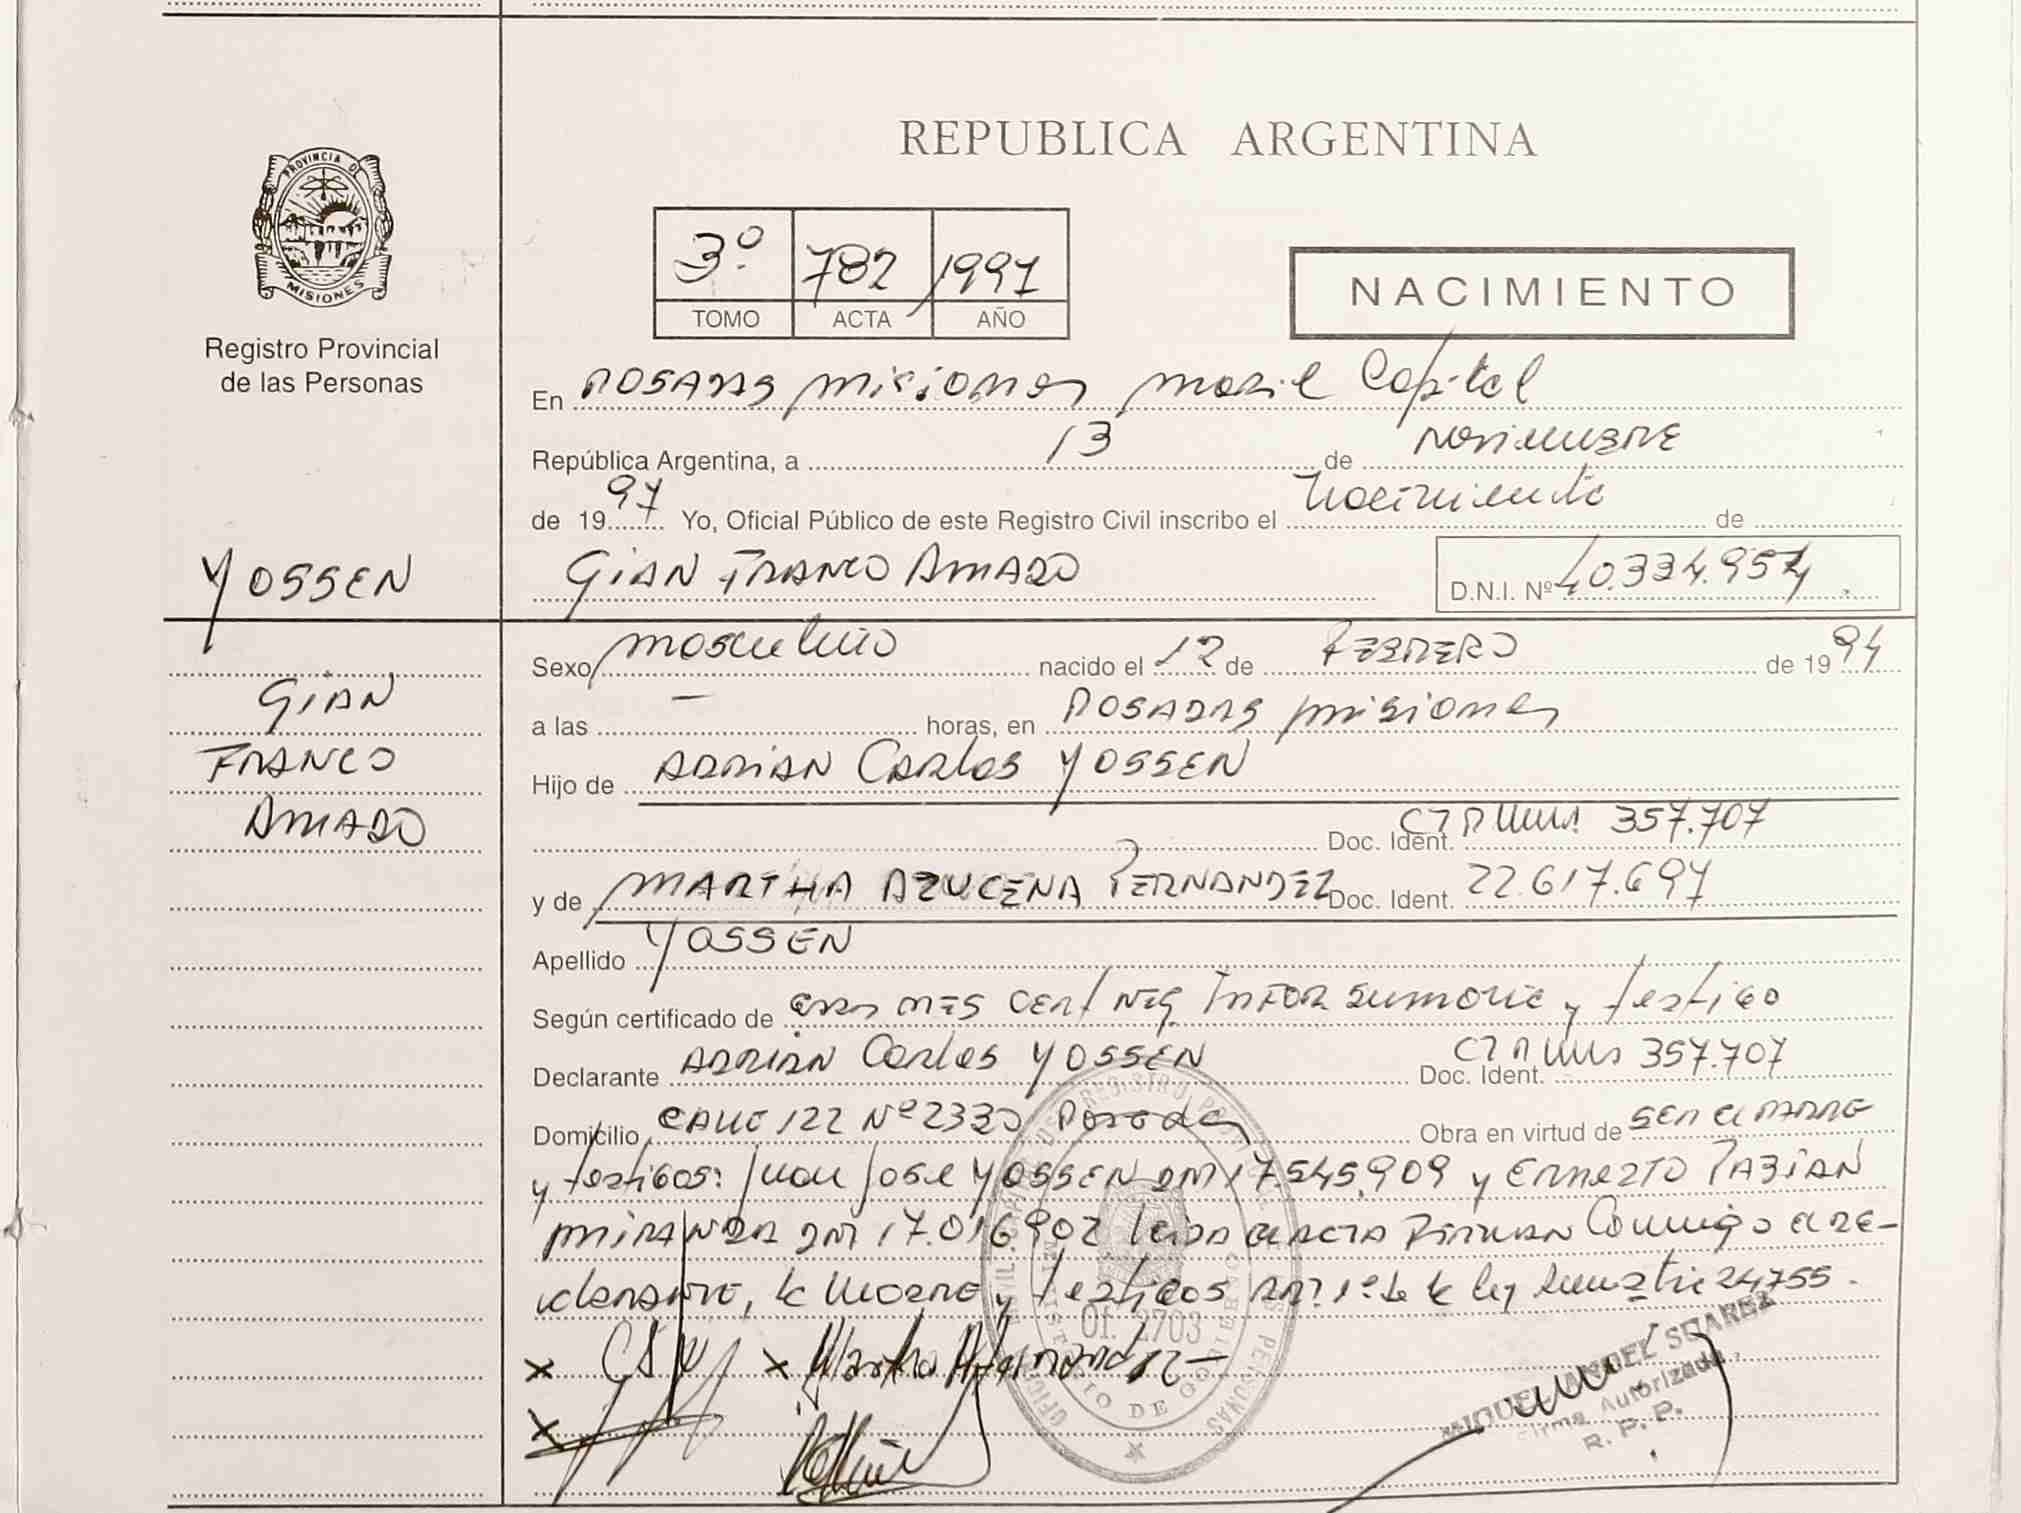 PROVINCIA DE
MISIONES
Registro Provincial
de las Personas
YOSSEN
GIAN
FRANCO
AMADO
REPUBLICA ARGENTINA
3º 782 1997
TOMO ACTA AÑO
NACIMIENTO
En POSADAS misiones Capital
República Argentina, a 13 de noviembre
de 1997 Yo, Oficial Público de este Registro Civil inscribo el nacimiento de
GIAN FRANCO AMADO D.N.I. Nº 40.334.954
Sexo masculino nacido el 12 de FEBRERO de 1994
a las — horas, en POSADAS misiones
Hijo de ADRIAN Carlos YOSSEN
Doc. Ident. 357.707
y de MARTHA AZUCENA FERNANDEZ Doc. Ident. 22.617.697
Apellido YOSSEN
Según certificado de CERT NEG INFOR SUMARIA y testigo
Declarante ADRIAN Carlos YOSSEN Doc. Ident. 357.707
Domicilio CALLE 122 Nº 2330 Posadas Obra en virtud de SER EL PADRE
y testigos: Juan José YOSSEN DNI 17.545.909 y ERNESTO FABIAN
MIRANDA DNI 17.016.902 leida el ACTA FIRMAN Conmigo el DE-
clarante, la madre y testigos ART 1º de la ley 24755.
OFICINA DEL REGISTRO PROVINCIAL DE LAS PERSONAS
MINISTERIO DE GOBIERNO
Of. 2703
MIGUEL ANGEL SUAREZ
Firma Autorizada
R. P. P.